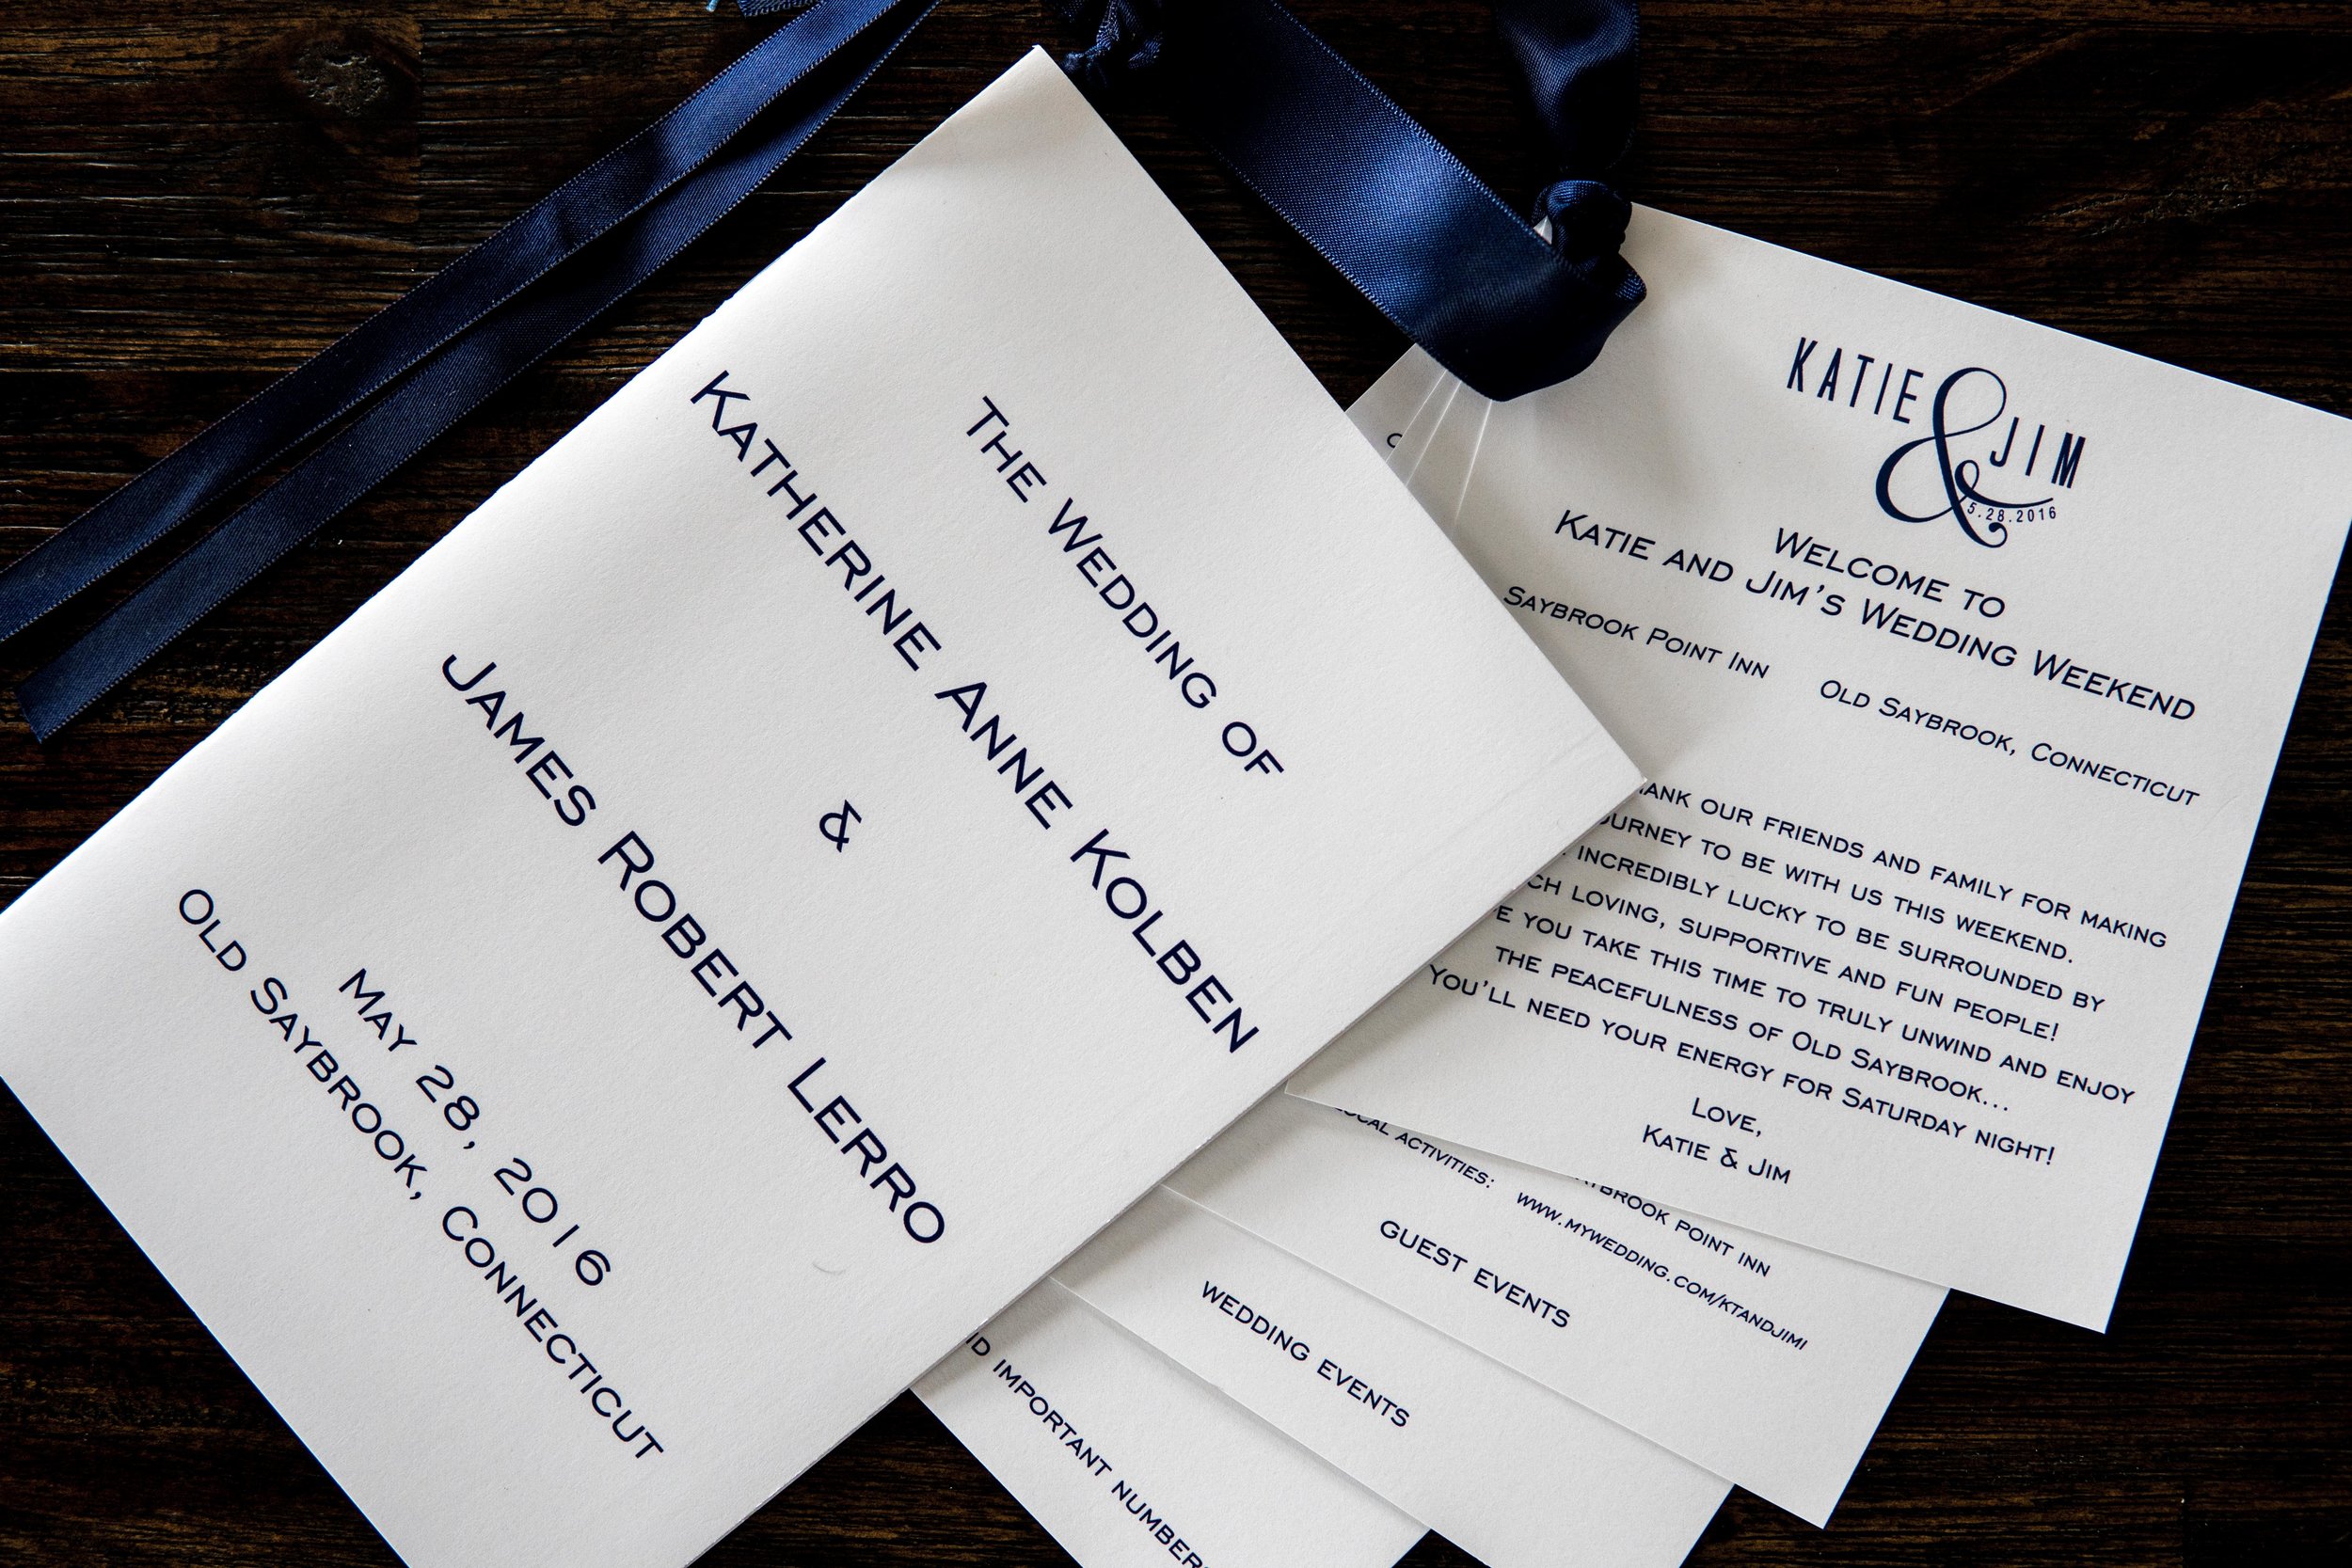 The Wedding of
Katherine Anne Kolben
&
James Robert Lerro
May 28, 2016
Old Saybrook, Connecticut
KATIE & JIM
5.28.2016
Welcome to
Katie and Jim's Wedding Weekend
Saybrook Point Inn Old Saybrook, Connecticut
our friends and family for making
to be with us this weekend.
incredibly lucky to be surrounded by
loving, supportive and fun people!
you take this time to truly unwind and enjoy
the peacefulness of Old Saybrook...
You'll need your energy for Saturday night!
Love,
Katie & Jim
point inn
activities: www.mywedding.com/ktandjim1
guest events
wedding events
important numbers